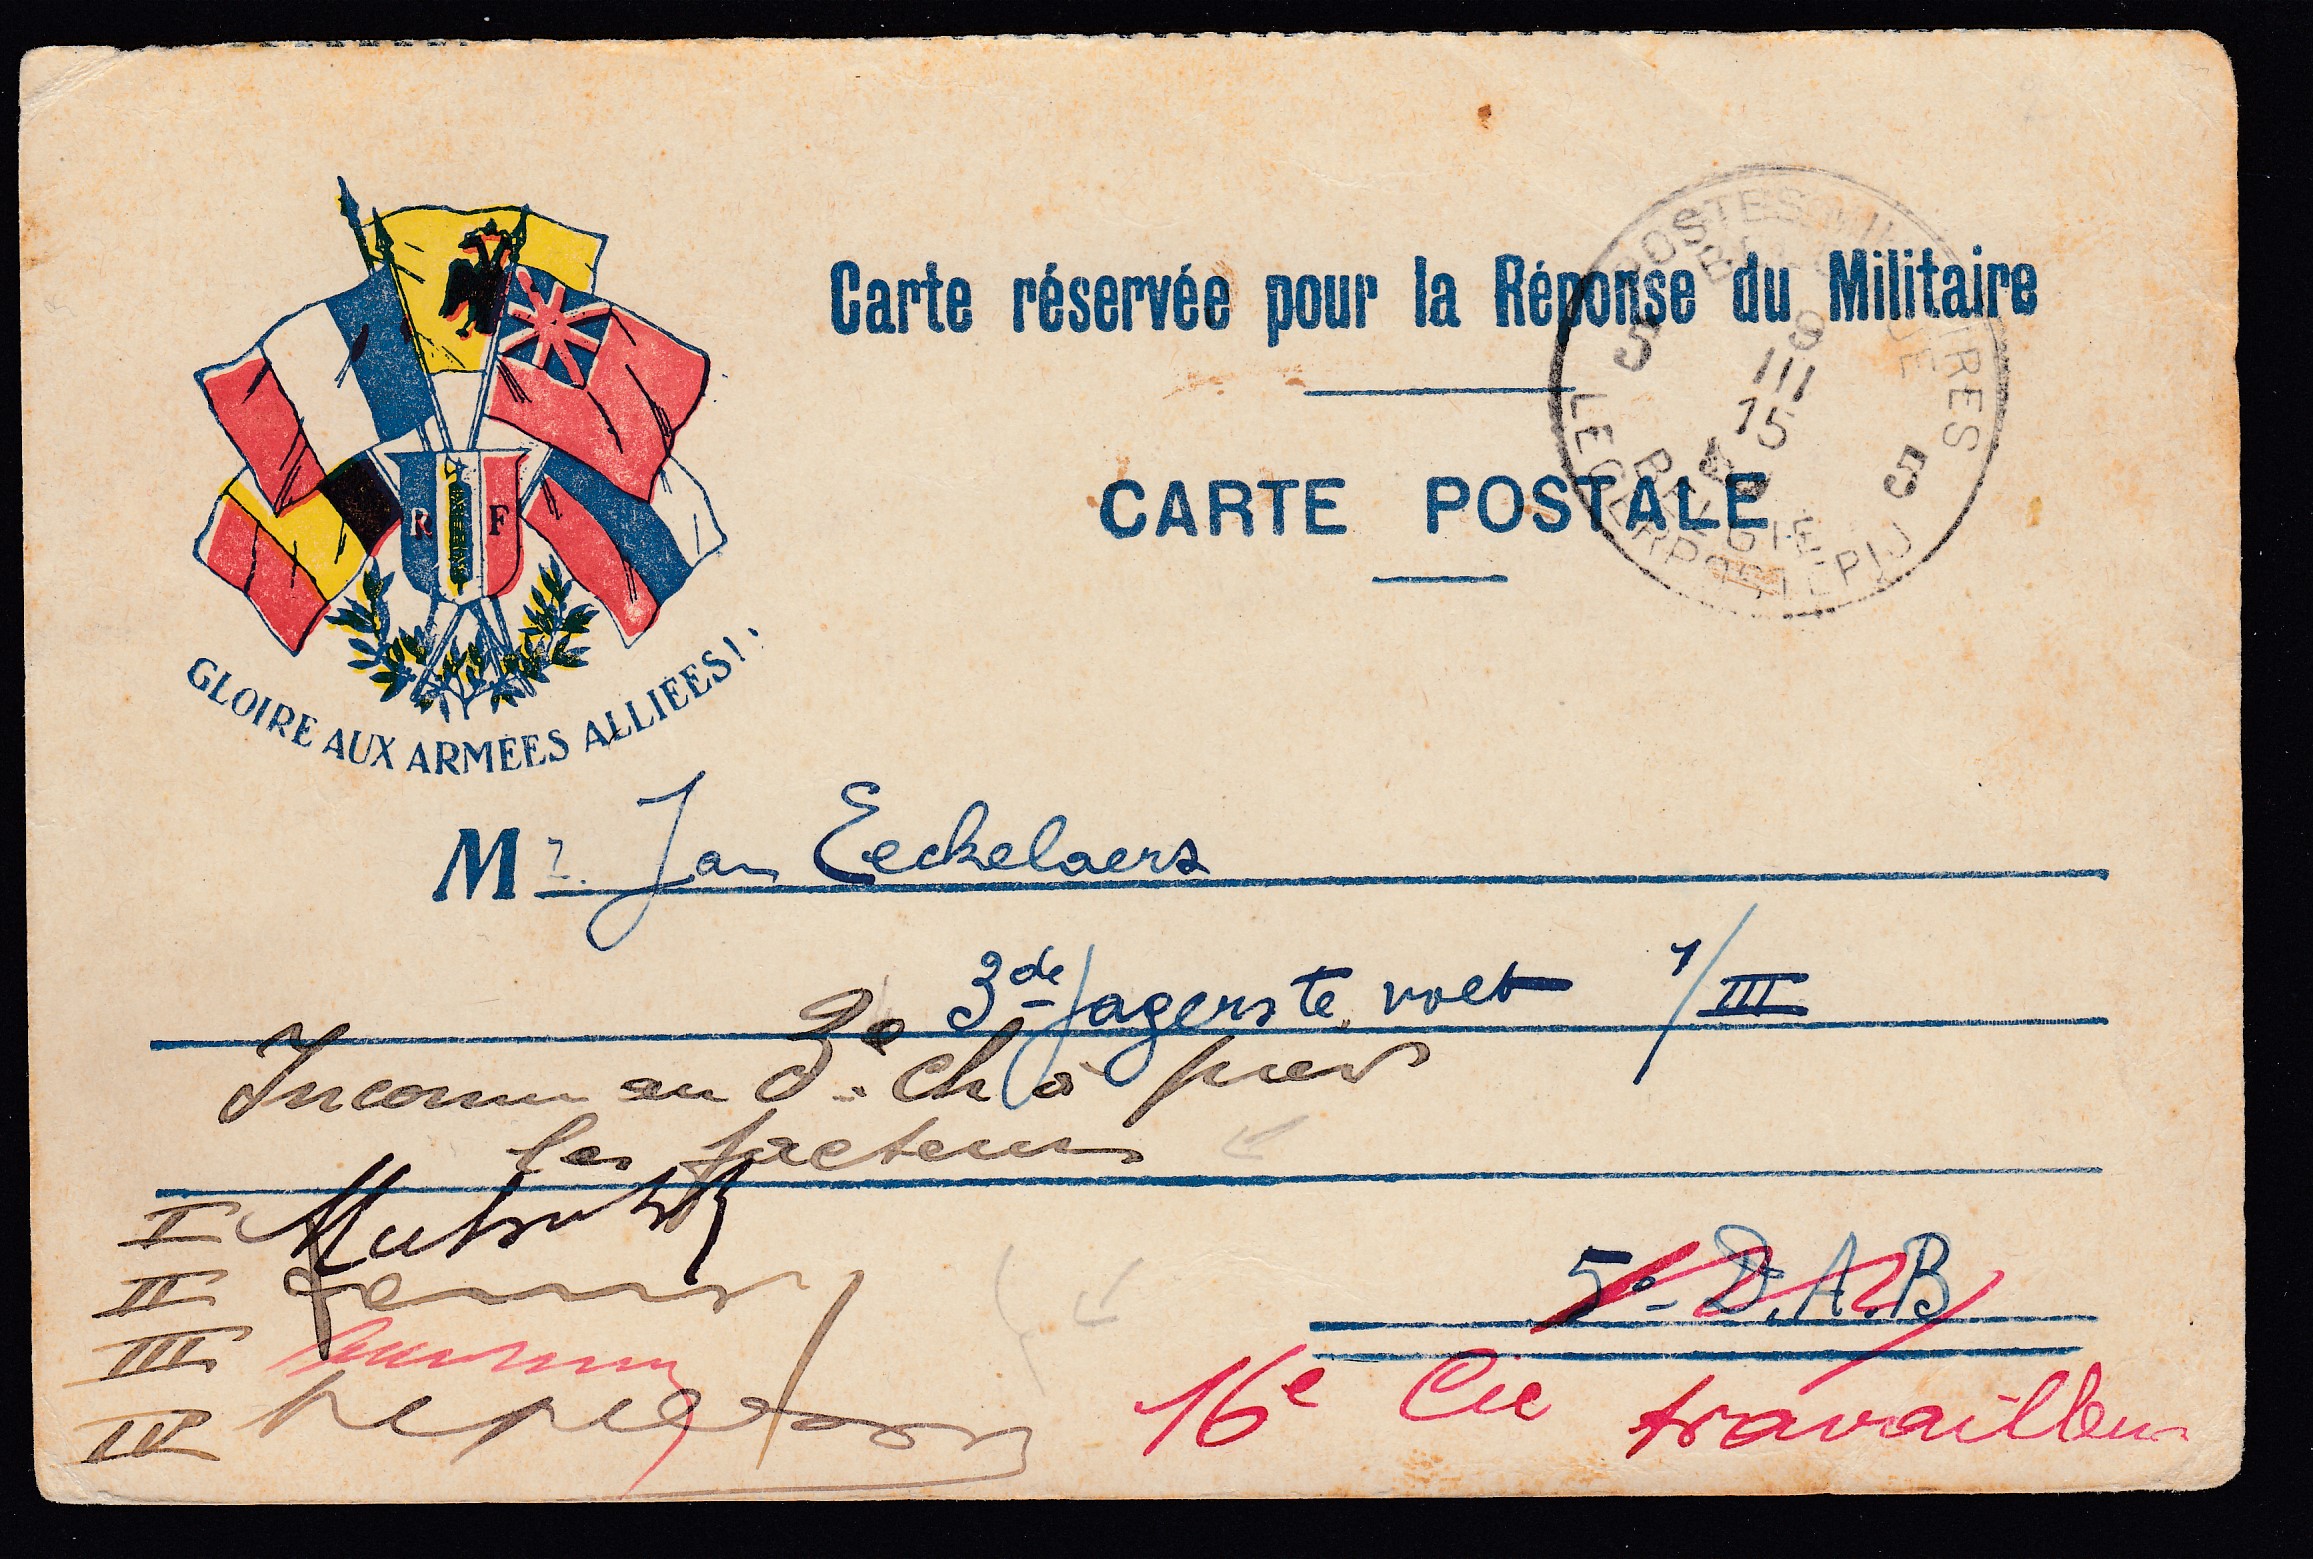 Carte réservée pour la Réponse du Militaire
CARTE POSTALE
POSTES MILITAIRES
BELGIQUE
5 9 5
III
15
BELGIE
LEGERPOSTERIJ
R F
GLOIRE AUX ARMÉES ALLIÉES!
Mr. Jan Eeckelaers
3de Jagers te voet 1/III
Inconnu au 3e Ch à pied
les facteurs
I
II
III
IV
5e D.A.B
16e Cie travailleurs